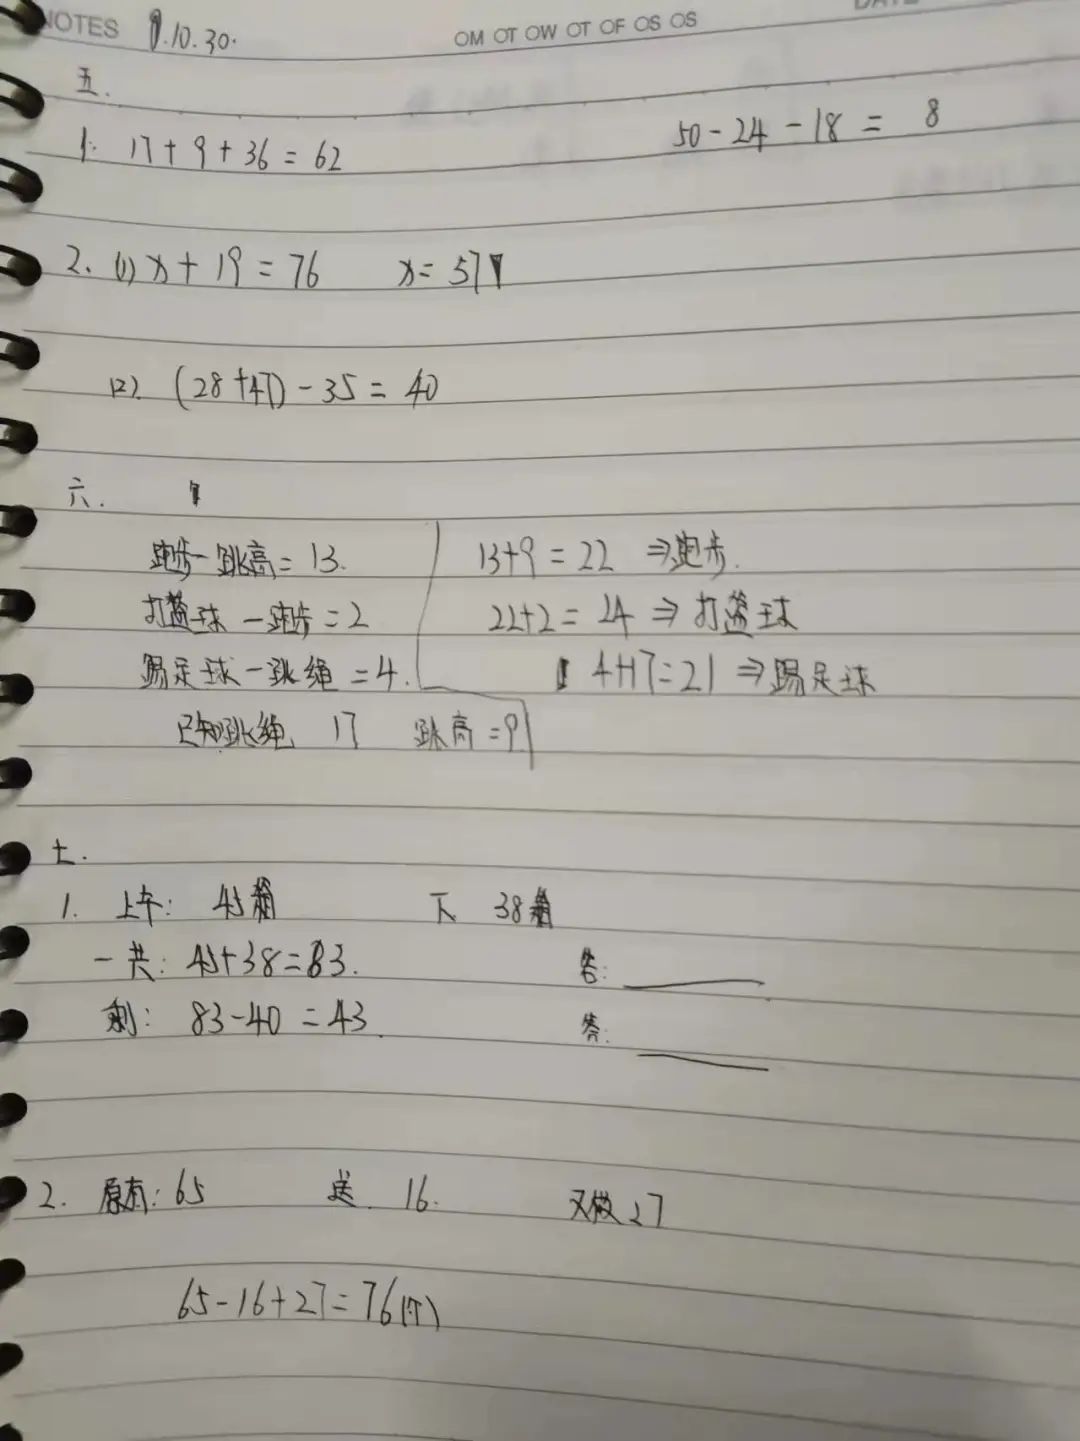 NOTES 9.10.30.
OM OT OW OT OF OS OS
五.
1. 17+9+36=62 50-24-18= 8
2. (1) x+19=76 x=57
(2). (28+47)-35=40
六.
跑步-跳高=13. 13+9=22 ⇒跑步.
打篮球-跑步=2 22+2=24⇒打篮球
踢足球-跳绳=4. 4+17=21⇒踢足球
已知跳绳 17 跳高=9
七.
1. 上午: 45箱 下 38箱
一共: 45+38=83. 答:
剩: 83-40=43. 答:
2. 原有: 65 送 16. 又做27
65-16+27=76(个)